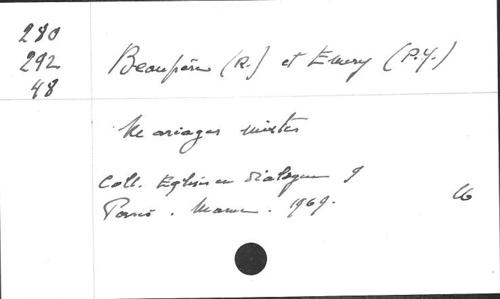 280
292
48
Beaupère (R.) et Emery (P.Y.)
Mariages mixtes
Coll. Eglises en dialogue 9
Paris. Mame. 1969.